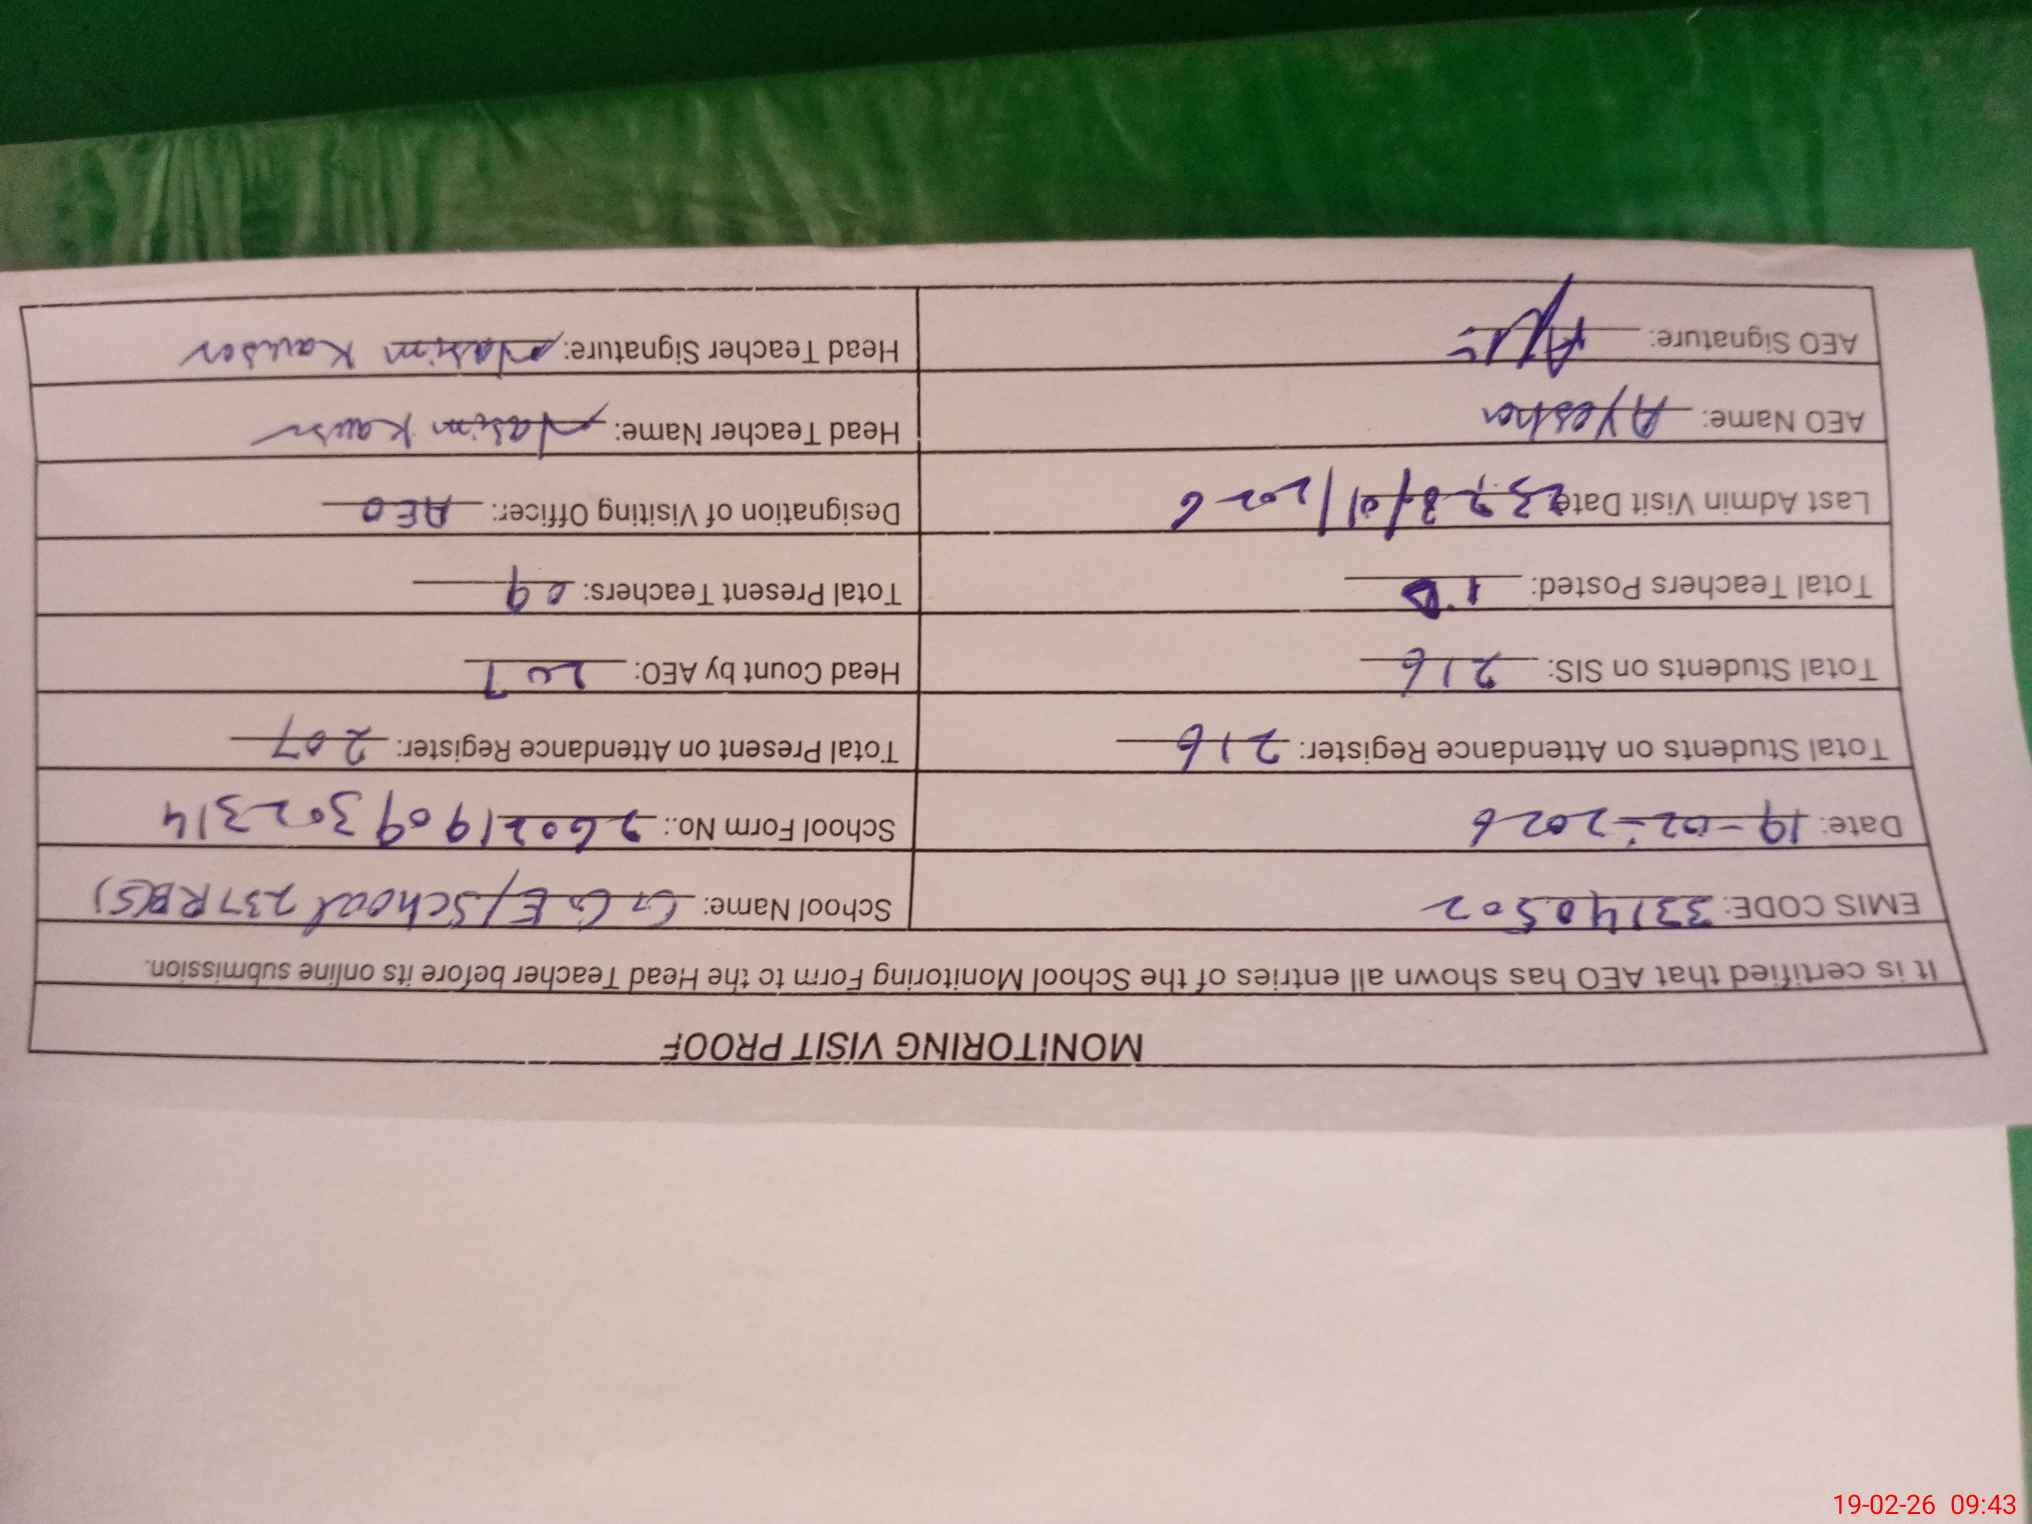 MONITORING VISIT PROOF
It is certified that AEO has shown all entries of the School Monitoring Form to the Head Teacher before its online submission.
EMIS CODE: 33140502 School Name: GGE/School 237RB(S)
Date: 19-02-2026 School Form No.: 26021909302314
Total Students on Attendance Register: 216 Total Present on Attendance Register: 207
Total Students on SIS: 216 Head Count by AEO: 207
Total Teachers Posted: 10 Total Present Teachers: 09
Last Admin Visit Date /01/2026 Designation of Visiting Officer: AEO
AEO Name: Ayesha Head Teacher Name: Nasim Kausar
AEO Signature: Head Teacher Signature: Nasim Kauser
19-02-26 09:43